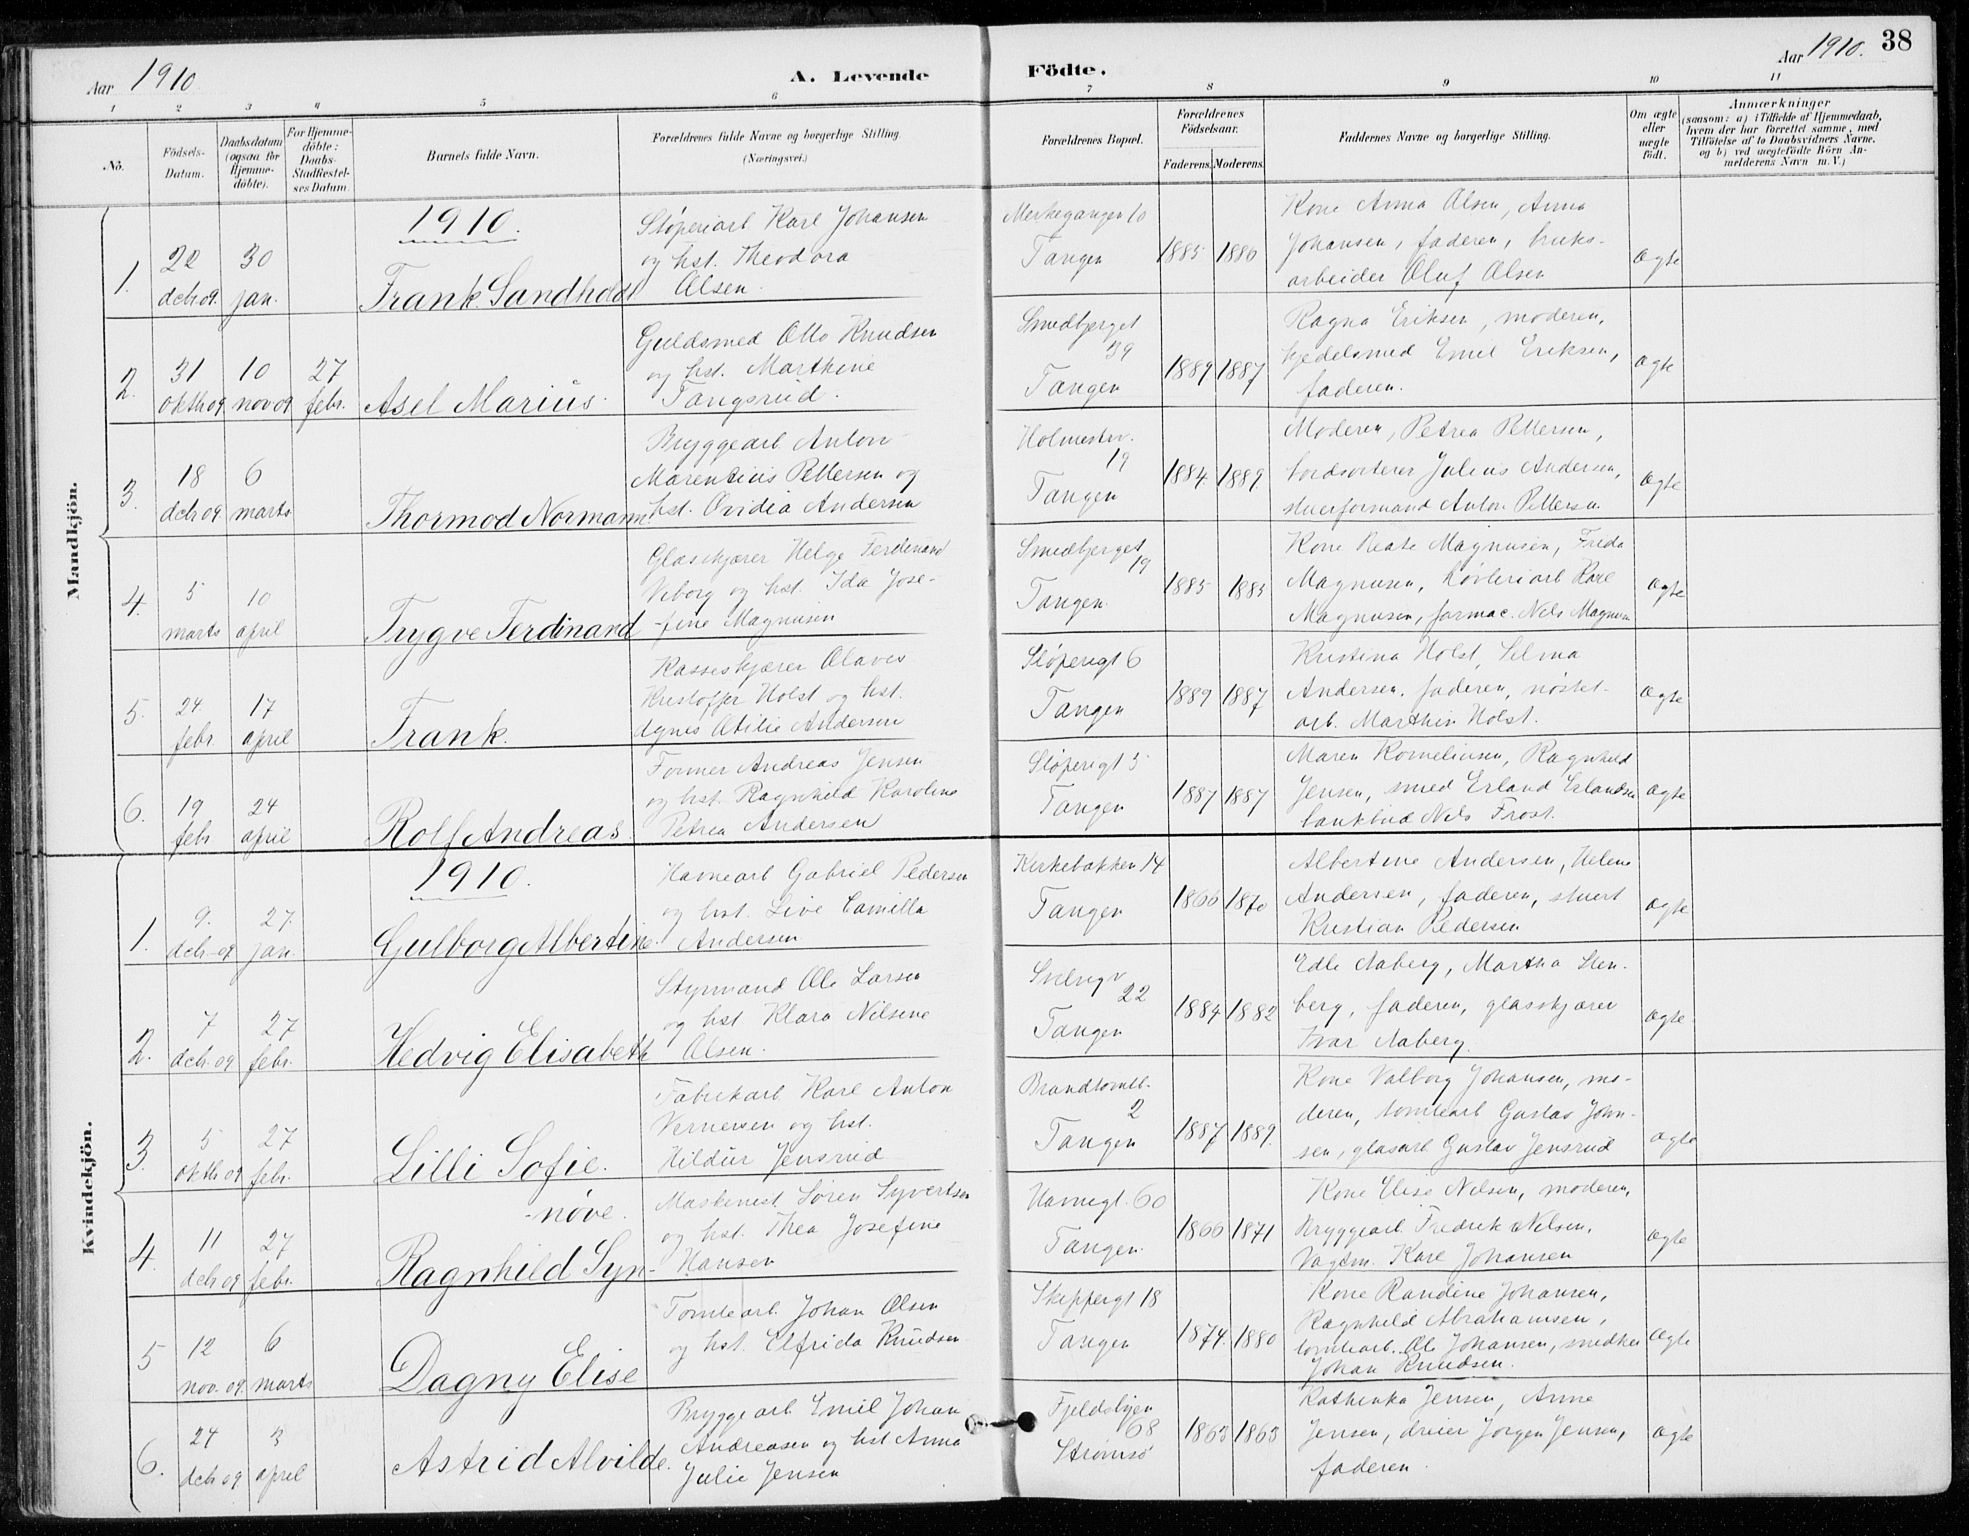 Aar 1910
A. Levende Födte.
Aar 1910. 38
1 2 3 4 5 6 7 8 9 10 11
No.
Födsels-Datum.
Daabsdatum (ogsaa for Hjemme-döbte).
For Hjemme-döbte: Daabs-Stadfæstel-ses Datum.
Barnets fulde Navn.
Forældrenes fulde Navne og borgerlige Stilling. (Næringsvei.)
Forældrenes Bopæl.
Forældrenes Födselsaar.
Faderens. Moderens.
Faddernes Navne og borgerlige Stilling.
Om ægte eller uægte födt.
Anmærkninger
(saasom: a) i Tilfælde af Hjemmedaab, hvem der har forrettet samme, med Tilföielse af to Daabsvidners Navne. og b) ved uægtefödte Börn An-melderens Navn m. V.)
Mandkjön.
1910.
1. 22 dcbr 09. 30 jan.
Frank Sandhold
Støperiarb Karl Johansen
og hst. Theodora
Olsen.
Merkegangen 10
Tangen
1885 1886
Kone Anna Olsen, Anna
Johansen, faderen, bruks-
arbeider Oluf Olsen
ægte
2. 31 oktbr 09 10 nov 09 27 febr.
Asel Marius.
Guldsmed Otto Knudsen
og hst. Marthine
Tangsrud.
Smedbjerget
39
Tangen
1889 1887
Ragna Eriksen, moderen,
kjedelsmed Emil Eriksen,
faderen.
ægte
3. 18 dcbr 09 6 marts
Thormod Normann
Bryggearb Anton
Marentius Pettersen og
hst. Ovidia Andersen
Holmestrv.
19
Tangen
1884 1889.
Moderen, Petrea Pettersen,
bordsorterer Julius Andersen,
stuerformand Anton Pettersen
ægte
4. 5 marts 10 april
Trygve Ferdinand
Glasskjærer Helge Ferdinand
Viborg og hst. Ida Jose-
-fine Magnusen
Smedbjerget
19
Tangen.
1885 1885
Kone Beate Magnusen, Freda
Magnusen, høvleriarb Karl
Magnusen, farmac. Nils Magnusen
ægte
5. 24 febr. 17 april
Frank.
Kasseskjærer Olaves
Kristoffer Holst og hst.
Agnes Otilie Andersen
Støperigt 6
Tangen
1889 1887
Kristina Holst, Selma
Andersen, faderen, nøstet-
arb. Marthin Holst.
ægte
6. 19 febr 24 april
Rolf Andreas.
Former Andreas Jensen
og hst. Ragnhild Karoline
Petrea Andersen
Støperigt 5
Tangen
1887 1887
Maren Korneliusen, Ragnhild
Jensen, smed Erland Erlandsen
bankbud Nils Frost.
ægte
Kvindekjön.
1910.
1. 9. dcbr-09 27 jan.
Gulborg Albertine.
Havnearb Gabriel Pedersen
og hst. Live Camilla
Andersen
Kirkebakken 14
Tangen
1866 1870
Albertine Andersen, Helene
Andersen, faderen, stuert
Kristian Pedersen
ægte
2. 7 dcbr. 09 27 febr.
Hedvig Elisabeth
Styrmand Ole Larsen
og hst Klara Nilsine
Olsen.
Svelvigv
22
Tangen
1884 1882
Edle Aaberg, Martha Sten-
berg, faderen, glasskjærer
Ivar Aaberg.
ægte.
3. 5 oktbr 09 27 febr.
Lilli Sofie.
Fabrikarb Karl Anton
Vernersen og hst.
Hildur Jensrud
Brandtomtb.
2
Tangen
1887 1889.
Kone Valborg Johansen, mo-
deren, tomtearb Gustav John-
sen, glasarb Gustav Jensrud
ægte
4. 11 dcbr 09 27 febr.
-nøve.
Ragnhild Syn-
Maskinest Søren Syvertsen
og hst. Thea Josefine
Hansen
Havnegt. 60
Tangen.
1866 1871
Kone Elise Nilsen, moderen,
Bryggearb Fredrik Nilsen,
Vagtm. Karl Johansen
ægte
5 12 nov. 09. 6 marts
Dagny Elise
Tomtearb. Johan Olsen
og hst. Elfrida Knudsen
Skippergt 18
Tangen
1874. 1880
Kone Randine Johansen,
Ragnhild Abrahamsen,
tomtearb. Ole Johansen, snedker
Johan Knudsen.
ægte
6. 24 dcbr 09 3 april
Astrid Alvilde.
Bryggearb Emil Johan
Andreasen og hst Anna
Julie Jensen
Fjeldsbyen
68
Strømsø
1863 1863
Kathinka Jensen, Anne
Jensen, dreier Jørgen Jensen,
faderen.
ægte